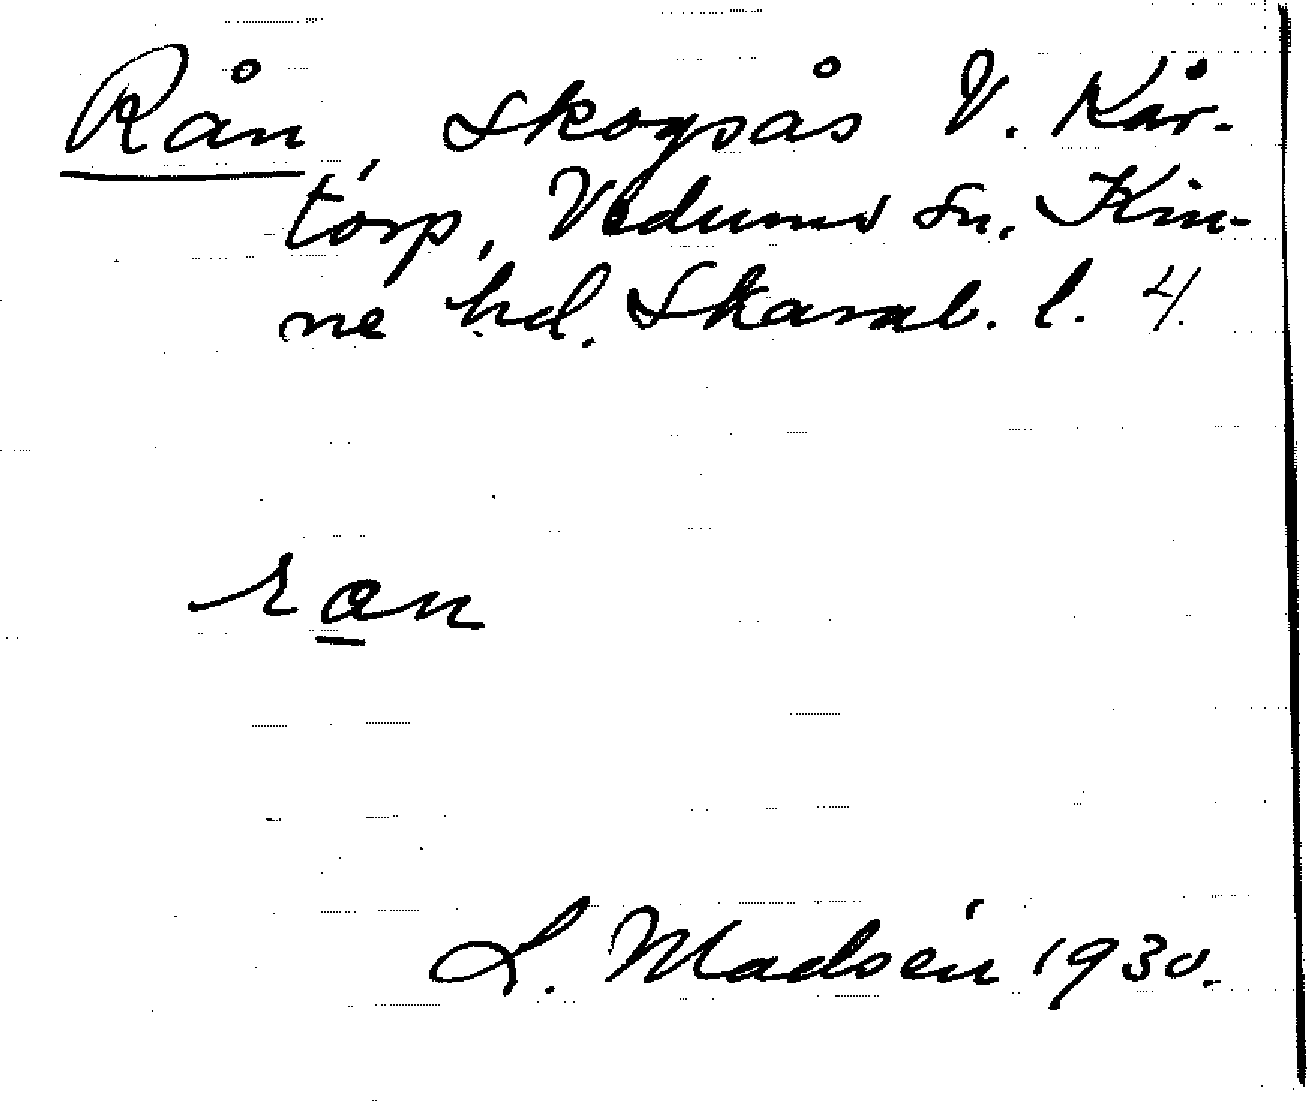 Rån, Skogsås V. Kår-
torp, Vedums sn. Kin-
ne hd. Skarab. l. 4.
ran
L. Madsén 1930.